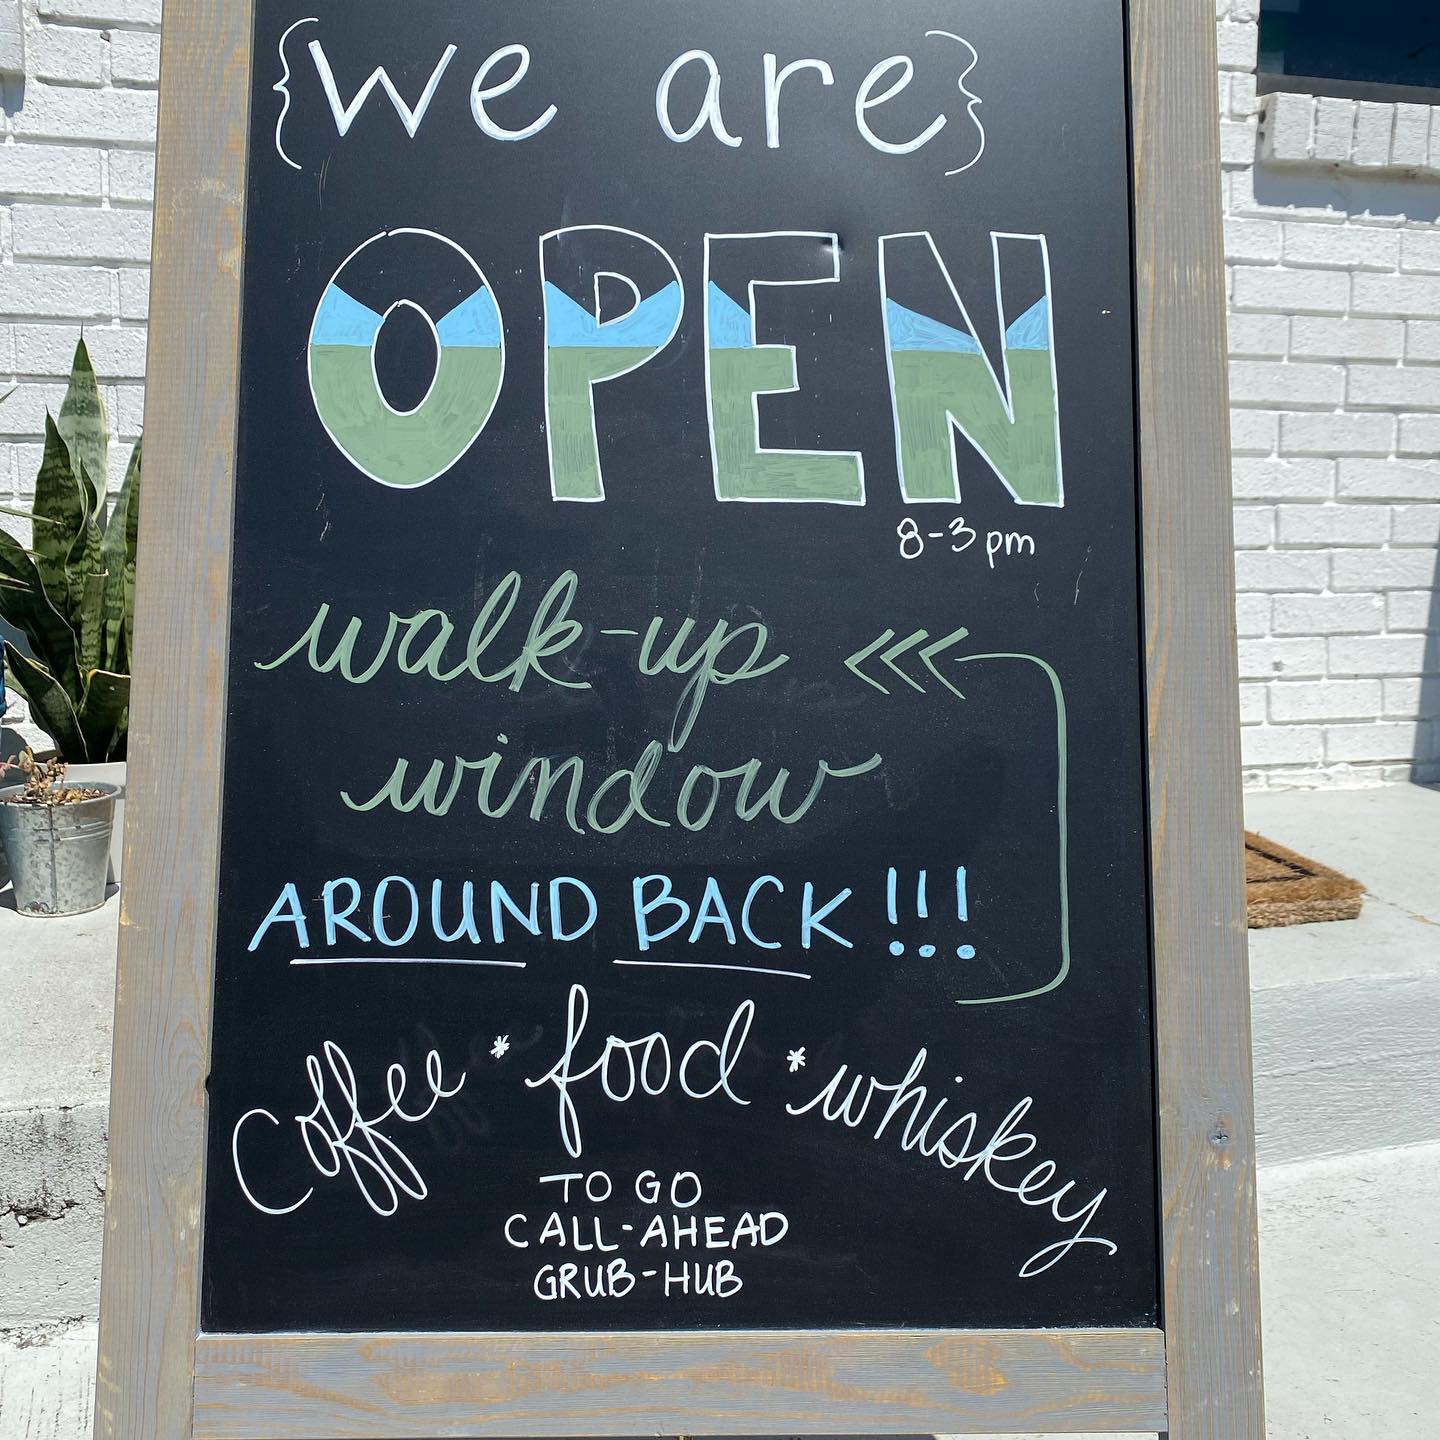 {we are}
OPEN
8-3pm
walk-up <<<
window
AROUND BACK!!!
Coffee * food * whiskey
TO GO
CALL-AHEAD
GRUB-HUB